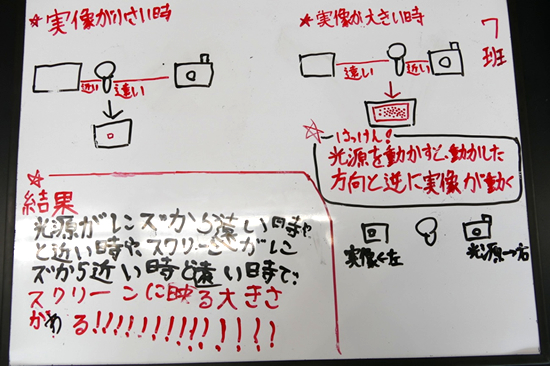 ★実像が小さい時
近い 遠い
★実像が大きい時
7班
遠い 近い
☆はっけん!
光源を動かすと、動かした
方向と逆に実像が動く
実像←左
光源→右
★結果
光源がレンズから遠い時や
と近い時や、スクリーンがレン
ズから近い時と遠い時で、
スクリーンに映る大きさ
がかわる!!!!!!!!!!!!!!